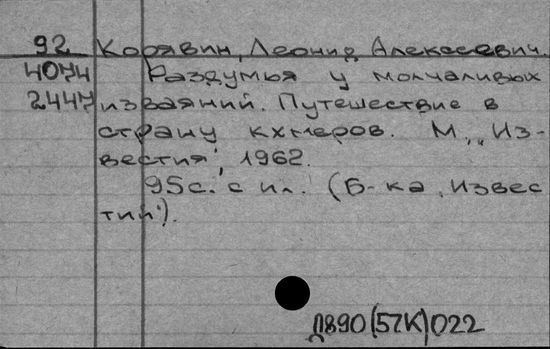 92 Корявин, Леонид Алексеевич.
4074 Раздумья у молчаливых
2447 изваяний. Путешествие в
страну кхмеров. М., „Из-
вестия", 1962.
95 с. с ил. (Б-ка „Извес
тий").
Д890(57К)022